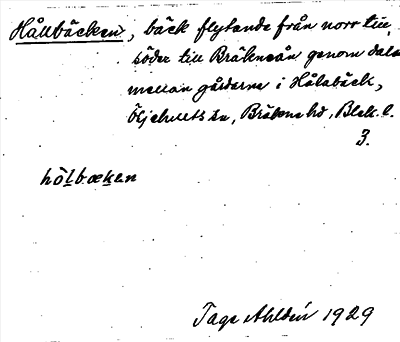 Hållbäcken, bäck flytande från norr till
söder till Bräkneån genom dalen
mellan gårdarne i Hålabäck,
Öljehults sn, Bräkne hd, Blek. l.
3.
hölbæken
Tage Ahldén 1929